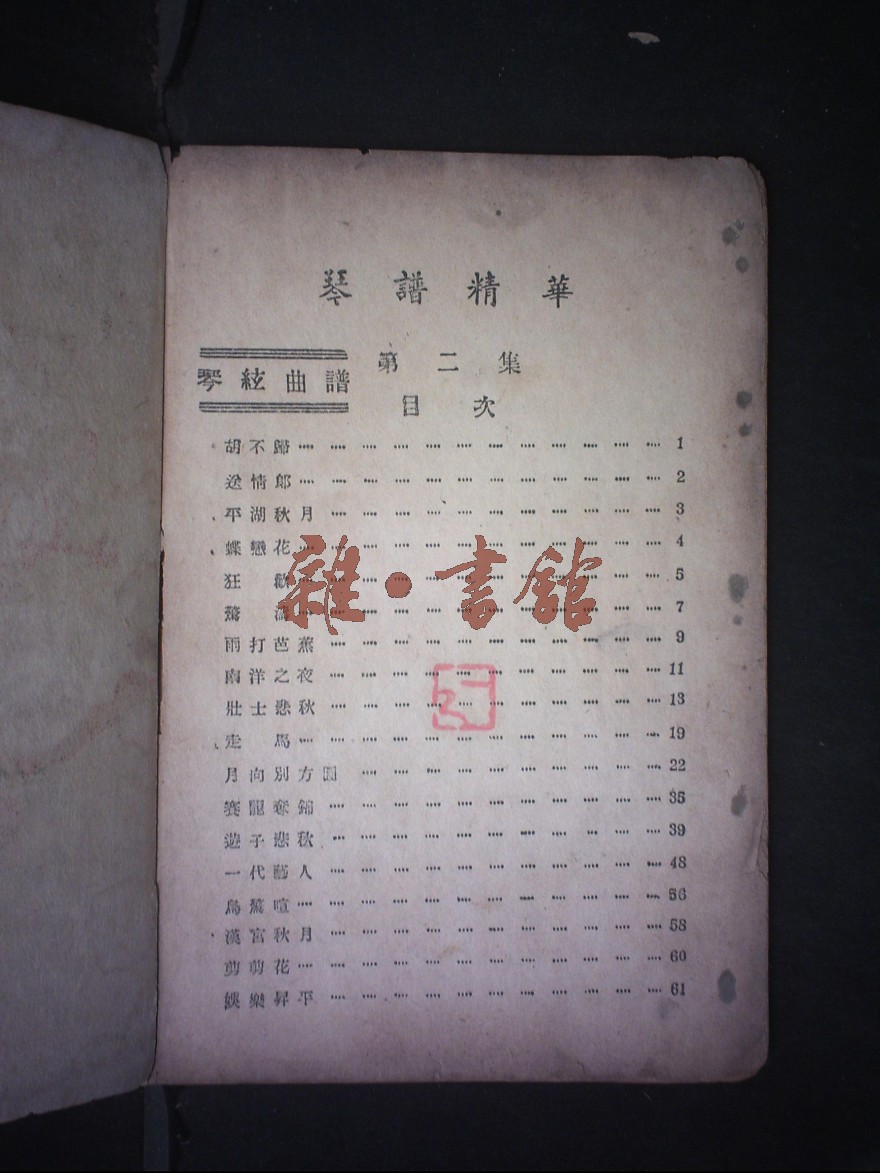 琴譜精華
第二集
琴絃曲譜
目次
胡不歸 1
送情郎 2
平湖秋月 3
蝶戀花 4
狂歡 5
驚濤 7
雨打芭蕉 9
南洋之夜 11
壯士悲秋 13
走馬 19
月向別方圓 22
賽龍奪錦 35
遊子悲秋 39
一代藝人 48
鳥驚喧 56
漢宮秋月 58
剪剪花 60
娛樂昇平 61
雜·書館